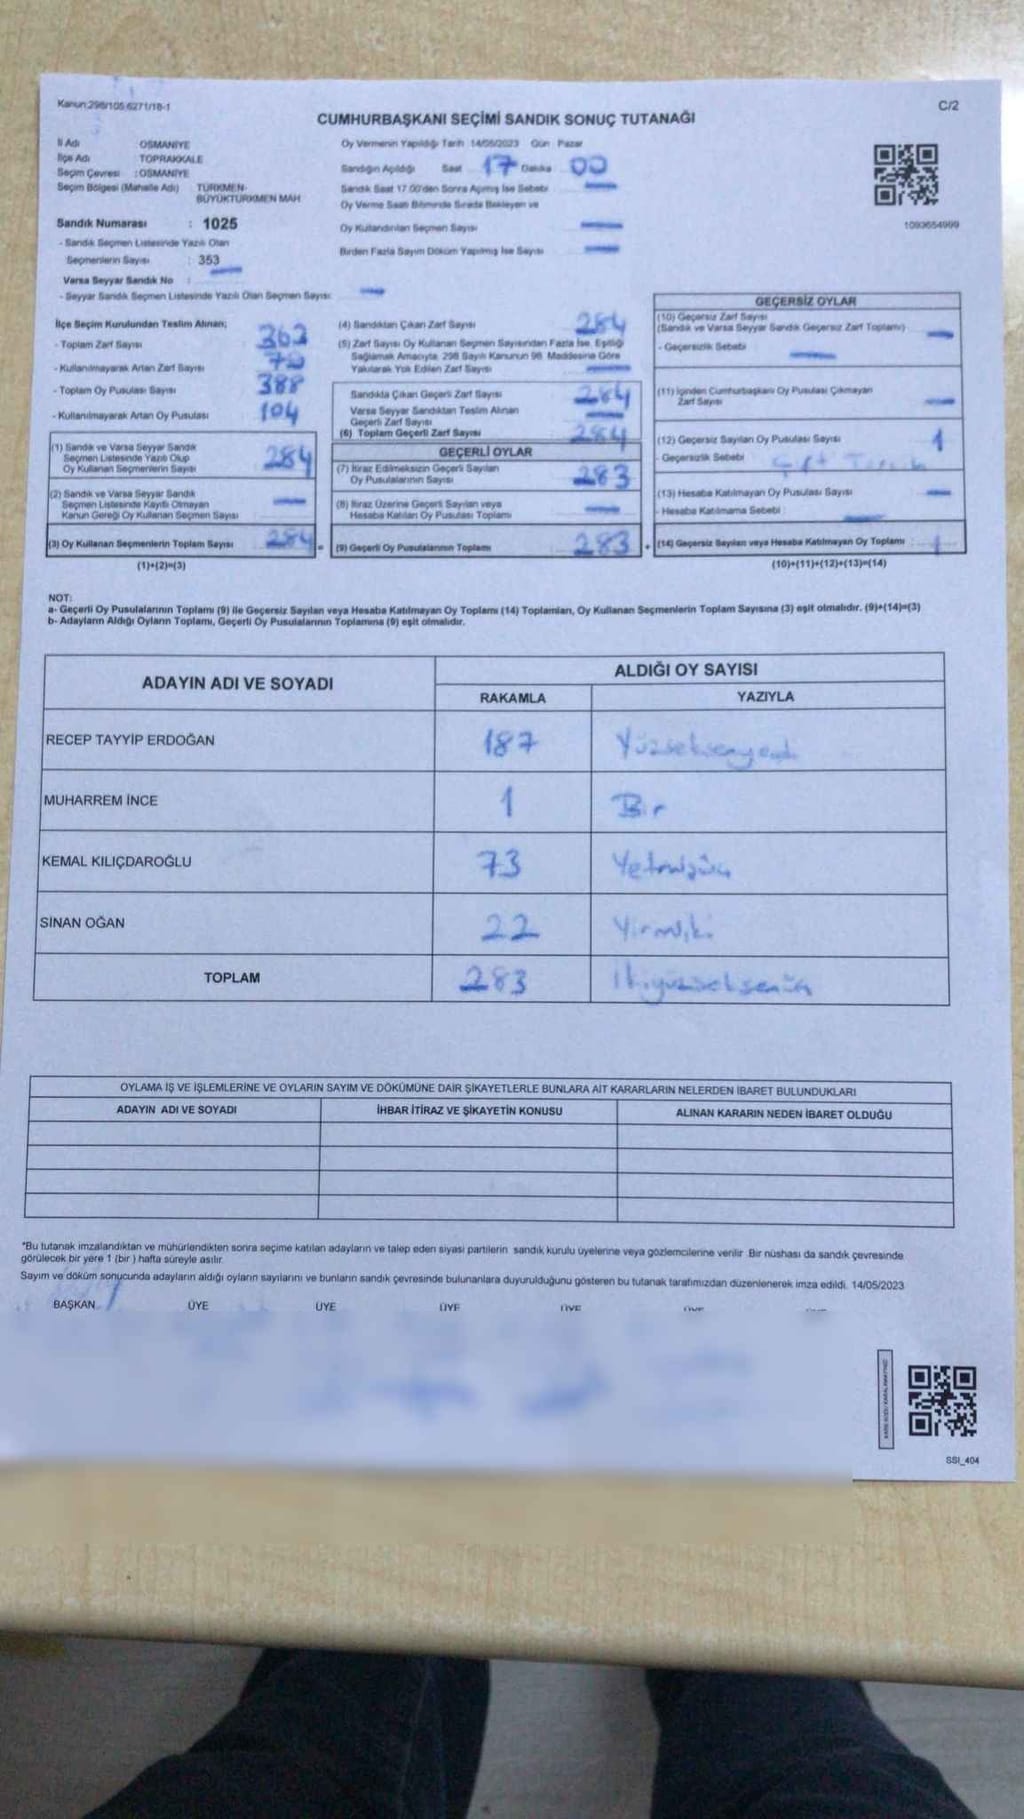 Kanun:298/105 6271/18-1
C/2
CUMHURBAŞKANI SEÇİMİ SANDIK SONUÇ TUTANAĞI
İl Adı OSMANİYE
İlçe Adı TOPRAKKALE
Seçim Çevresi :OSMANİYE
Seçim Bölgesi (Mahalle Adı) TÜRKMEN-
BÜYÜKTÜRKMEN MAH
Sandık Numarası : 1025
- Sandık Seçmen Listesinde Yazılı Olan
Seçmenlerin Sayısı : 353
Varsa Seyyar Sandık No :
- Seyyar Sandık Seçmen Listesinde Yazılı Olan Seçmen Sayısı:
Oy Vermenin Yapıldığı Tarih 14/05/2023 Gün Pazar
Sandığın Açıldığı Saat 17 Dakika 00
Sandık Saat 17.00'den Sonra Açılmış İse Sebebi
Oy Verme Saati Bitiminde Sırada Bekleyen ve
Oy Kullandırılan Seçmen Sayısı
Birden Fazla Sayım Döküm Yapılmış İse Sayısı
1093654999
İlçe Seçim Kurulundan Teslim Alınan;
- Toplam Zarf Sayısı 362
- Kullanılmayarak Artan Zarf Sayısı
- Toplam Oy Pusulası Sayısı 388
- Kullanılmayarak Artan Oy Pusulası 104
(1) Sandık ve Varsa Seyyar Sandık
Seçmen Listesinde Yazılı Olup
Oy Kullanan Seçmenlerin Sayısı 284
(2) Sandık ve Varsa Seyyar Sandık
Seçmen Listesinde Kayıtlı Olmayan
Kanun Gereği Oy Kullanan Seçmen Sayısı
(3) Oy Kullanan Seçmenlerin Toplam Sayısı 284 =
(1)+(2)=(3)
(4) Sandıktan Çıkan Zarf Sayısı 284
(5) Zarf Sayısı Oy Kullanan Seçmen Sayısından Fazla İse, Eşitliği
Sağlamak Amacıyla, 298 Sayılı Kanunun 98. Maddesine Göre
Yakılarak Yok Edilen Zarf Sayısı
Sandıkta Çıkan Geçerli Zarf Sayısı 284
Varsa Seyyar Sandıktan Teslim Alınan
Geçerli Zarf Sayısı
(6) Toplam Geçerli Zarf Sayısı 284
GEÇERLİ OYLAR
(7) İtiraz Edilmeksizin Geçerli Sayılan
Oy Pusulalarının Sayısı 283
(8) İtiraz Üzerine Geçerli Sayılan veya
Hesaba Katılan Oy Pusulası Toplamı
(9) Geçerli Oy Pusulalarının Toplamı 283 +
GEÇERSİZ OYLAR
(10) Geçersiz Zarf Sayısı
(Sandık ve Varsa Seyyar Sandık Geçersiz Zarf Toplamı)
- Geçersizlik Sebebi
(11) İçinden Cumhurbaşkanı Oy Pusulası Çıkmayan
Zarf Sayısı
(12) Geçersiz Sayılan Oy Pusulası Sayısı 1
- Geçersizlik Sebebi
(13) Hesaba Katılmayan Oy Pusulası Sayısı
- Hesaba Katılmama Sebebi :
(14) Geçersiz Sayılan veya Hesaba Katılmayan Oy Toplamı : 1
(10)+(11)+(12)+(13)=(14)
NOT:
a- Geçerli Oy Pusulalarının Toplamı (9) ile Geçersiz Sayılan veya Hesaba Katılmayan Oy Toplamı (14) Toplamları, Oy Kullanan Seçmenlerin Toplam Sayısına (3) eşit olmalıdır. (9)+(14)=(3)
b- Adayların Aldığı Oyların Toplamı, Geçerli Oy Pusulalarının Toplamına (9) eşit olmalıdır.
ADAYIN ADI VE SOYADI
ALDIĞI OY SAYISI
RAKAMLA YAZIYLA
RECEP TAYYİP ERDOĞAN 187 Yüzseksenyedi
MUHARREM İNCE 1 Bir
KEMAL KILIÇDAROĞLU 73 Yetmişüç
SİNAN OĞAN 22 Yirmiiki
TOPLAM 283 İkiyüzseksenüç
OYLAMA İŞ VE İŞLEMLERİNE VE OYLARIN SAYIM VE DÖKÜMÜNE DAİR ŞİKAYETLERLE BUNLARA AİT KARARLARIN NELERDEN İBARET BULUNDUKLARI
ADAYIN ADI VE SOYADI İHBAR İTİRAZ VE ŞİKAYETİN KONUSU ALINAN KARARIN NEDEN İBARET OLDUĞU
*Bu tutanak imzalandıktan ve mühürlendikten sonra seçime katılan adayların ve talep eden siyasi partilerin sandık kurulu üyelerine veya gözlemcilerine verilir. Bir nüshası da sandık çevresinde
görülecek bir yere 1 (bir ) hafta süreyle asılır.
Sayım ve döküm sonucunda adayların aldığı oyların sayılarını ve bunların sandık çevresinde bulunanlara duyurulduğunu gösteren bu tutanak tarafımızdan düzenlenerek imza edildi. 14/05/2023
BAŞKAN ÜYE ÜYE ÜYE ÜYE
SSI_404